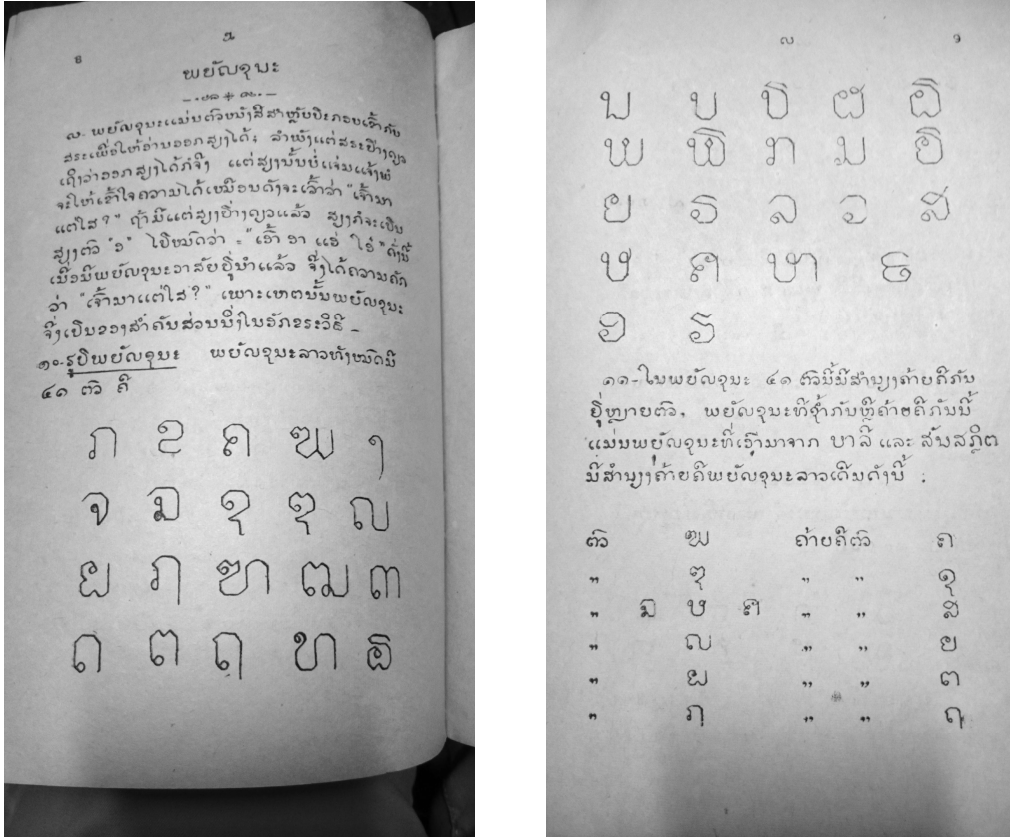 ພຍັຎຊນະ
໙. ພຍັຎຊນະແມ່ນຕົວໜັງສືສຳຫຼັບປະກອບເຂົ້າກັບ
ສຣະເພື່ອໃຫ້ອ່ານອອກສຽງໄດ້; ລຳພັງແຕ່ສຣະຢ່າງດຽວ
ເຖິງວ່າອອກສຽງໄດ້ກໍຈິງ ແຕ່ສຽງນັ້ນບໍ່ແຈ່ມແຈ້ງພໍ
ຈະໃຫ້ເຂົ້າໃຈຄວາມໄດ້ເໝືອນດັ່ງຈະເວົ້າວ່າ "ເຈົ້າມາ
ແຕ່ໃສ?" ຖ້າມີແຕ່ສຽງຢ່າງດຽວແລ້ວ ສຽງກໍຈະເປັນ
ສຽງຕົວ "ອ" ໄປໝົດວ່າ = "ເອົ້າ ອາ ແອ່ ໃອ" ດັ່ງນີ້
ເມື່ອມີພຍັຎຊນະອາສັຍຢູ່ນຳແລ້ວ ຈຶ່ງໄດ້ຄວາມຄັກ
ວ່າ "ເຈົ້າມາແຕ່ໃສ?" ເພາະເຫດນັ້ນພຍັຎຊນະ
ຈຶ່ງເປັນຂອງສຳຄັນສ່ວນນຶ່ງໃນອັກຂຣະວິທີ –
໑໐-ຮູບພຍັຎຊນະ ພຍັຎຊນະລາວທັງໝົດມີ
໔໑ ຕົວ ຄື
ກ ຂ ຄ ຆ ງ
ຈ ຉ ຊ ຌ ຎ
ຏ ຐ ຑ ຒ ຓ
ດ ຕ ຖ ທ ຘ
ນ ບ ປ ຜ ຝ
ພ ຟ ຠ ມ ຢ
ຍ ຣ ລ ວ ສ
ຩ ຨ ຫ ຬ
ອ ຮ
໑໑-ໃນພຍັຎຊນະ ໔໑ ຕົວນີ້ມີສຳນຽງຄ້າຍຄືກັນ
ຢູ່ຫຼາຍຕົວ, ພຍັຎຊນະທີ່ຊ້ຳກັນຫຼືຄ້າຍຄືກັນນີ້
ແມ່ນພຍັຎຊນະທີ່ເອົາມາຈາກ ບາລີ ແລະ ສັນສກຼິຕ
ມີສຳນຽງຄ້າຍຄືພຍັຎຊນະລາວເດີມດັ່ງນີ້ :
ຕົວ ຆ ຄ້າຍຄືຕົວ ຄ
" ຌ " " ຊ
" ຉ ຩ ຨ " " ສ
" ຎ " " ຍ
" ຏ " " ຕ
" ຐ " " ຖ